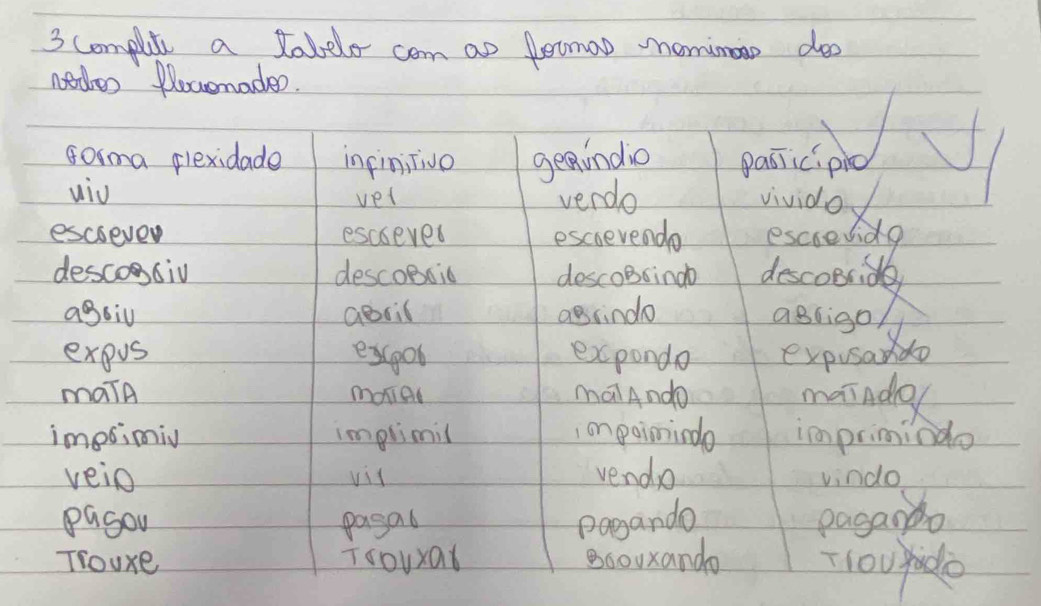 3 complete a tabela com as formas nominais dos
verbos flecionados.
forma flexidade infinitivo gerúndio particípio
viu ver verdo vivido
escrevev escrever escrevendo escrevido
descobriv descobrir descobrindo descobrido
abriv abrir abrindo abrigo
expvs expor expondo expusando
maTA maTar maTAndo maTAdo
imprimiv imprimir imprimindo imprimindo
veio vir vendo vindo
pagov pagar pagando pagando
Trouxe Trouxar Brouxando Trouxido